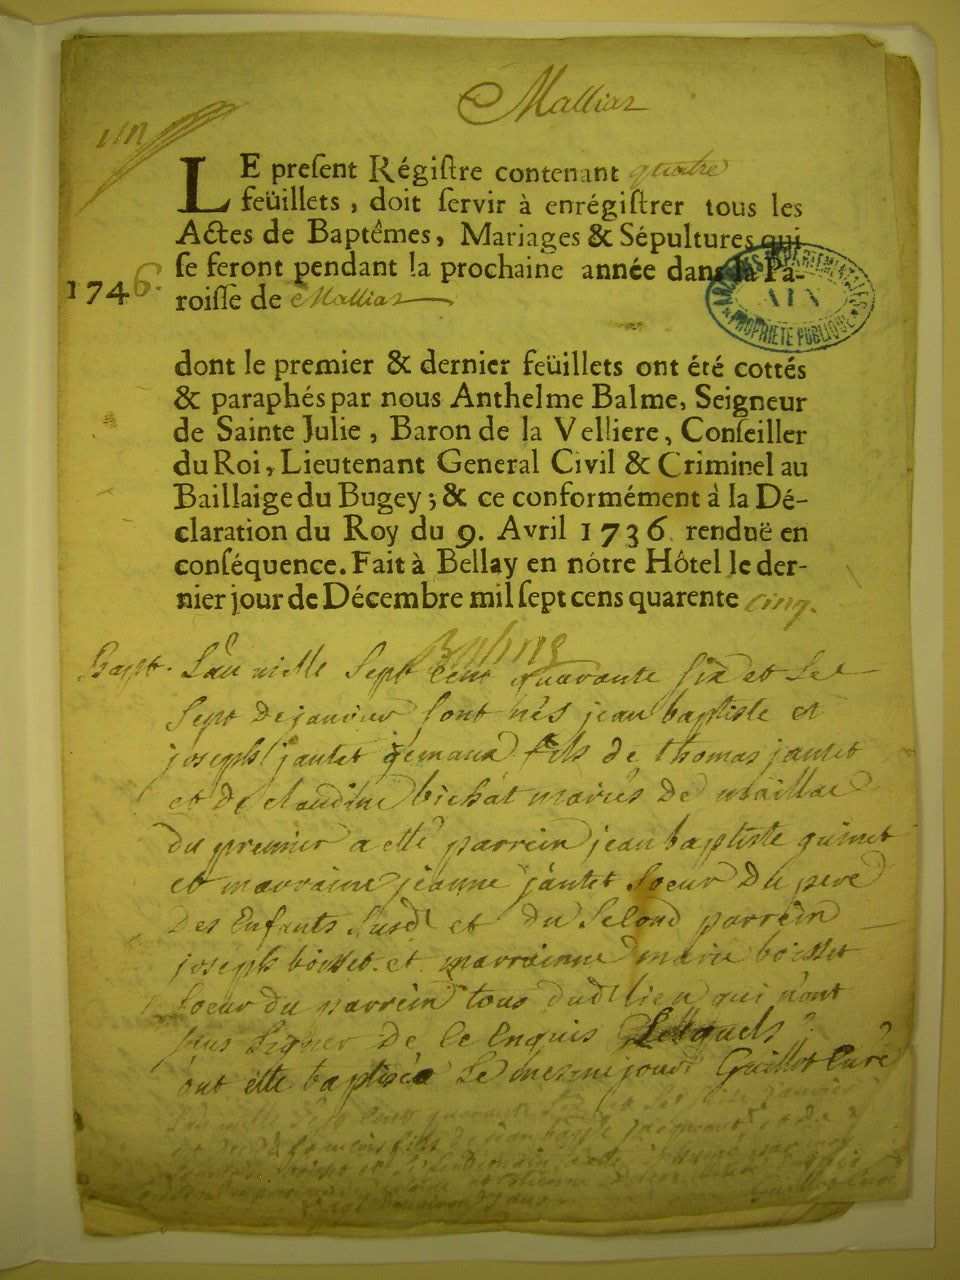 Malliaz
un
LE preſent Régiſtre contenant quatre
feüillets, doit ſervir à enrégiſtrer tous les
Actes de Baptêmes, Mariages & Sépultures qui
ſe feront pendant la prochaine année dans la Pa-
1746.
roiſſe de Malliaz
ARCHIVES DÉPARTEMENTALES
AIN
PROPRIÉTÉ PUBLIQUE
dont le premier & dernier feüillets ont été cottés
& paraphés par nous Anthelme Balme, Seigneur
de Sainte Julie, Baron de la Velliere, Conſeiller
du Roi, Lieutenant General Civil & Criminel au
Baillaige du Bugey; & ce conformément à la Dé-
claration du Roy du 9. Avril 1736. renduë en
conſéquence. Fait à Bellay en nôtre Hôtel le der-
nier jour de Décembre mil ſept cens quarente cinq.
Bapt. L'an mille Sept cent quarante six et Le
Sept de janvier sont nés jean baptiste et
joseph jantet gemaux fils de thomas jantet
et de claudine bichat mariés de maillac
du premier a etté parrein jean baptiste guinet
et marraine jeanne jantet soeur du pere
Des Enfants Susd et du Second parrein
joseph boisset et marrainne marie boisset
soeur du parrein tous dud lieu qui n'ont
sus Signer de ce Enquis Lesquels
ont étté baptisés le mesme jour Guillot Curé
L'an mille Sept Cent quarante Six et janvier
fils de jean
Guillot Curé